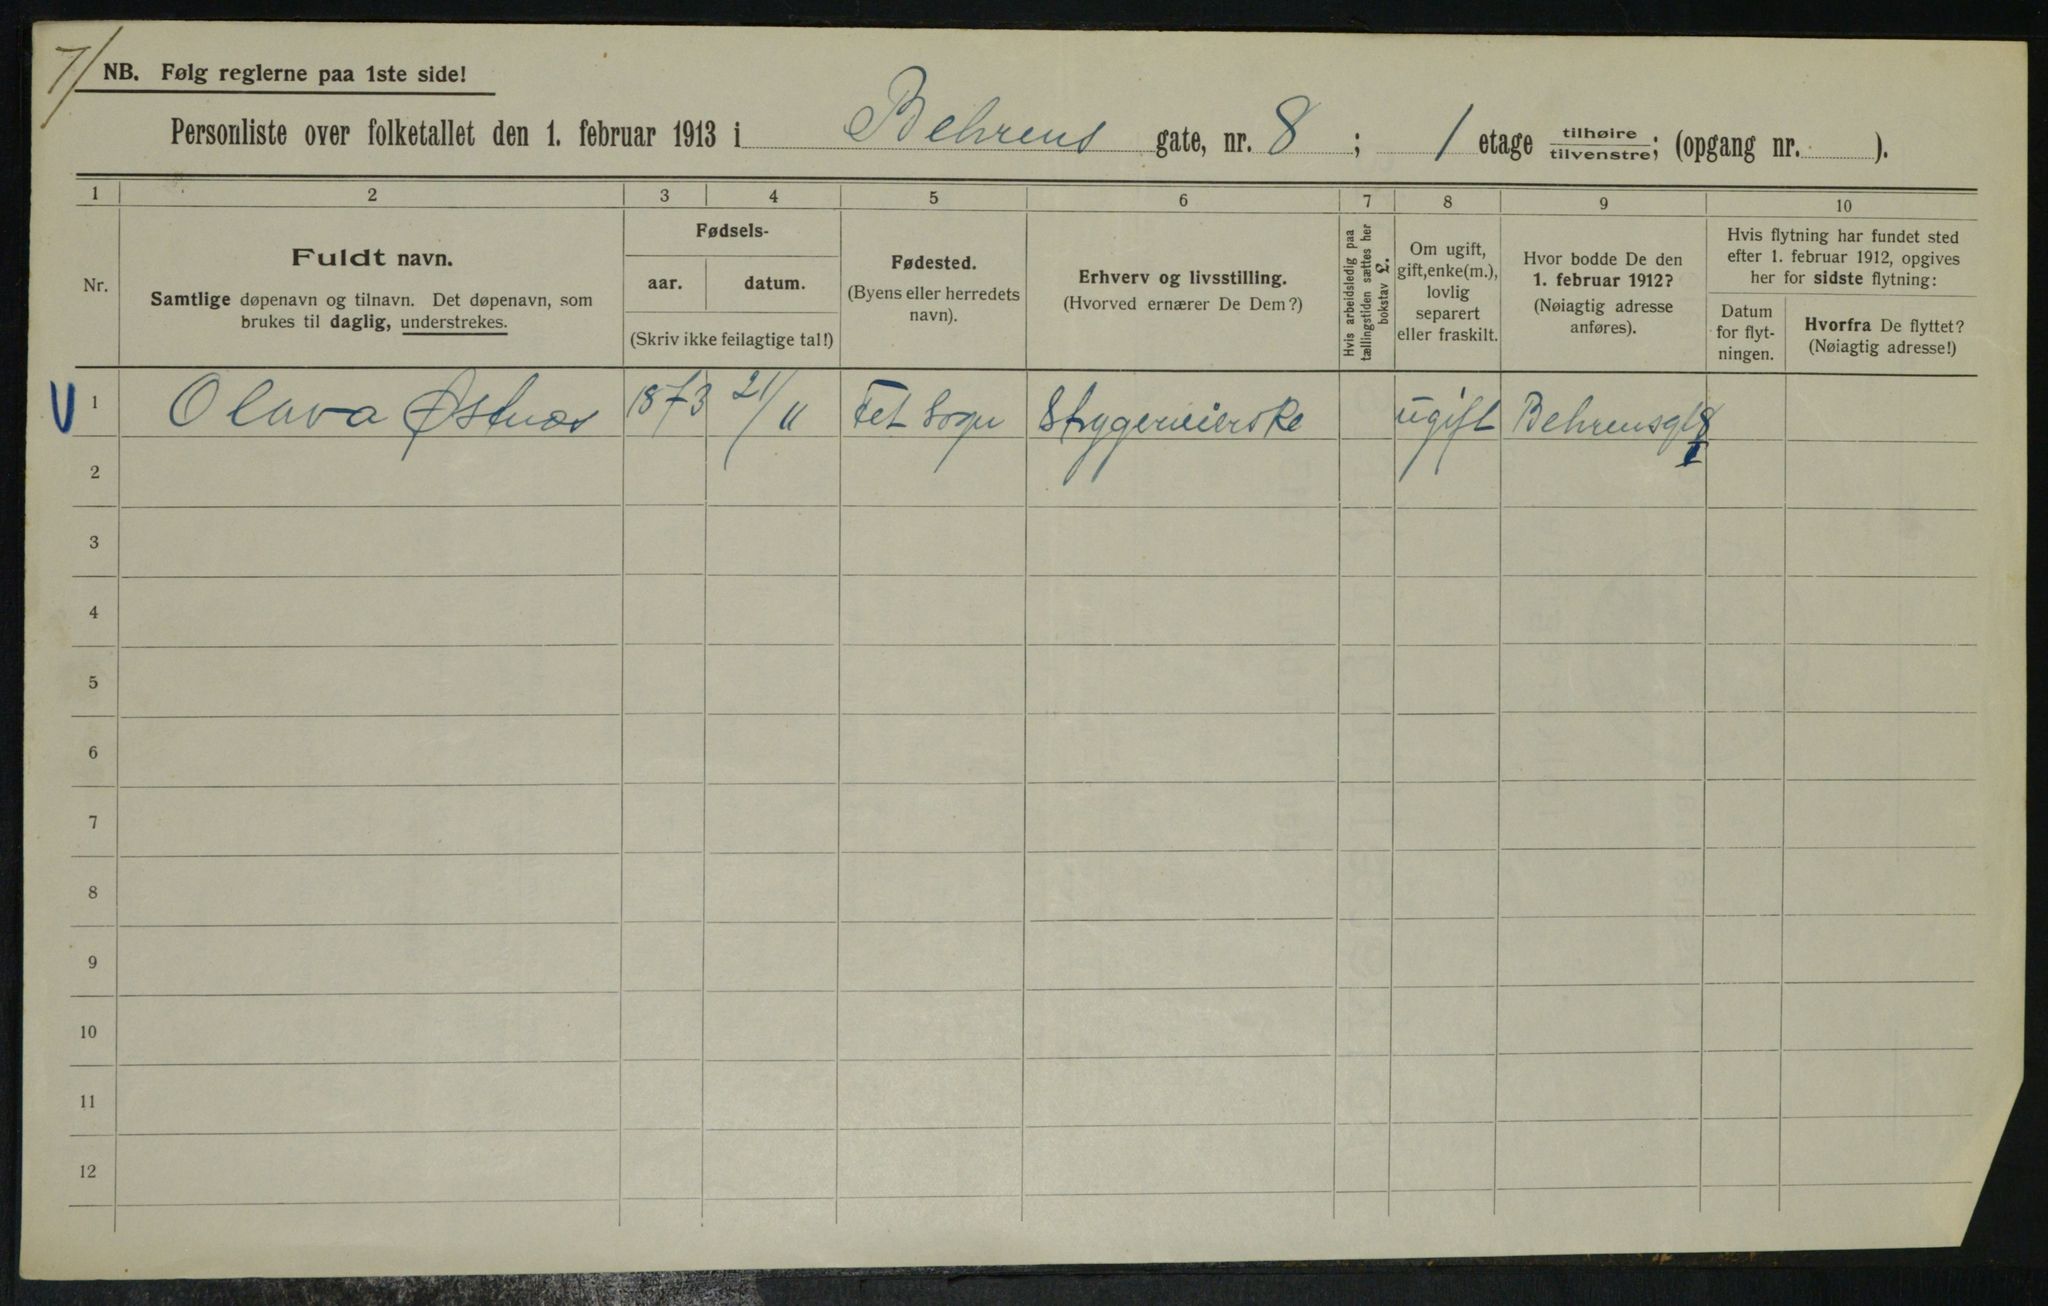 7/
NB. Følg reglerne paa 1ste side!
Personliste over folketallet den 1. februar 1913 i Behrens gate, nr. 8 ; 1 etage tilhøire / tilvenstre; (opgang nr. ).
1 2 3 4 5 6 7 8 9 10
Nr.
Fuldt navn.
Samtlige døpenavn og tilnavn. Det døpenavn, som
brukes til daglig, understrekes.
Fødsels-
aar. datum.
(Skriv ikke feilagtige tal!)
Fødested.
(Byens eller herredets
navn).
Erhverv og livsstilling.
(Hvorved ernærer De Dem?)
Hvis arbeidsledig paa
tællingstiden sættes her
bokstav £.
Om ugift,
gift, enke(m.),
lovlig
separert
eller fraskilt.
Hvor bodde De den
1. februar 1912?
(Nøiagtig adresse
anføres).
Hvis flytning har fundet sted
efter 1. februar 1912, opgives
her for sidste flytning:
Datum
for flyt-
ningen.
Hvorfra De flyttet?
(Nøiagtig adresse!)
1 Olava Østnes 1873 21/11 Fet Sogn ugift Behrensgt 8 I
2
3
4
5
6
7
8
9
10
11
12